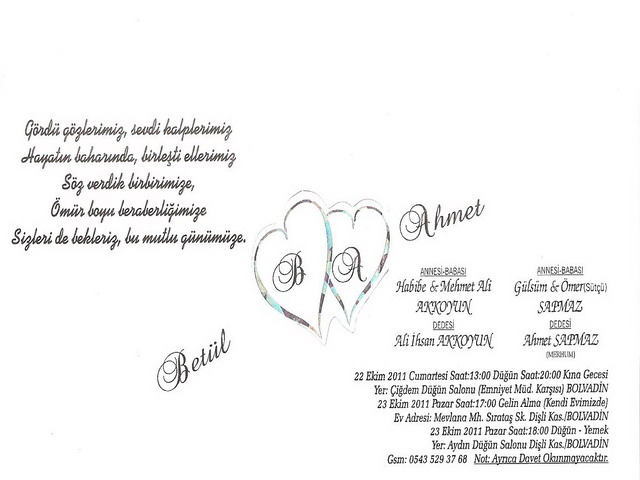 Gördü gözlerimiz, sevdi kalplerimiz
Hayatın baharında, birleşti ellerimiz
Söz verdik birbirimize,
Ömür boyu beraberliğimize
Sizleri de bekleriz, bu mutlu günümüze.
Ahmet
B A
Betül
ANNESİ-BABASI
Habibe & Mehmet Ali
AKKOYUN
DEDESİ
Ali İhsan AKKOYUN
ANNESİ-BABASI
Gülsüm & Ömer(Sütçü)
SAPMAZ
DEDESİ
Ahmet SAPMAZ
(MERHUM)
22 Ekim 2011 Cumartesi Saat:13:00 Düğün Saat:20:00 Kına Gecesi
Yer: Çiğdem Düğün Salonu (Emniyet Müd. Karşısı) BOLVADİN
23 Ekim 2011 Pazar Saat:17:00 Gelin Alma (Kendi Evimizde)
Ev Adresi: Mevlana Mh. Sırataş Sk. Dişli Kas./BOLVADİN
23 Ekim 2011 Pazar Saat:18:00 Düğün - Yemek
Yer: Aydın Düğün Salonu Dişli Kas./BOLVADİN
Gsm: 0543 529 37 68 Not: Ayrıca Davet Okunmayacaktır.